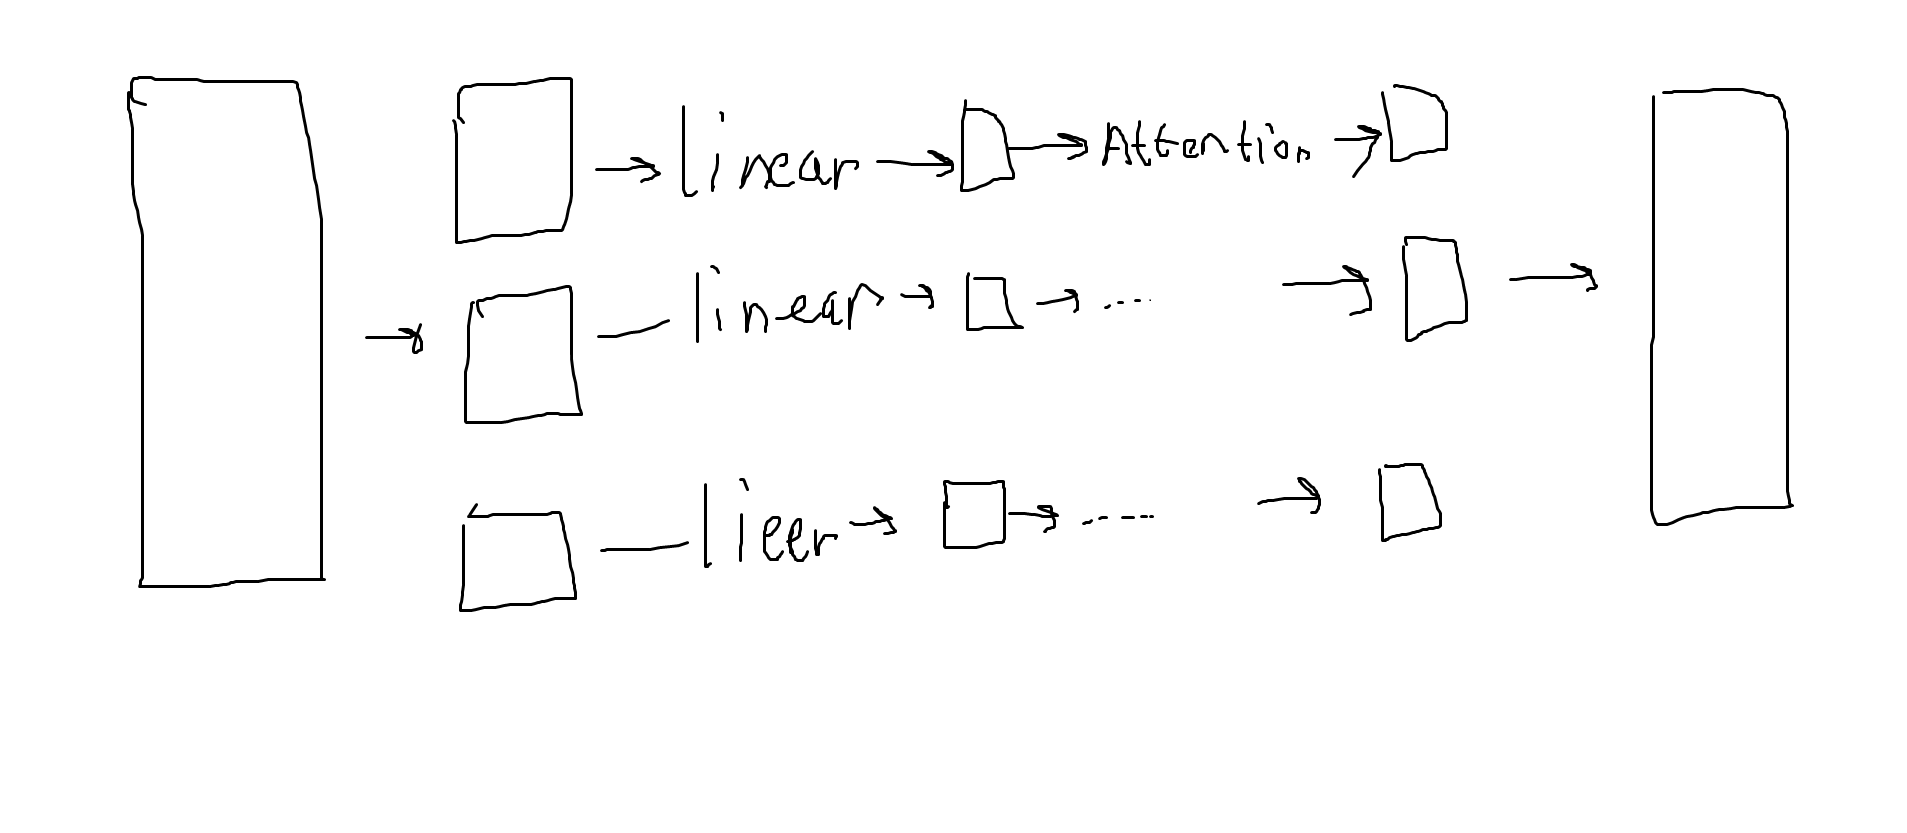 linear Attention
linear ....
lieer .....